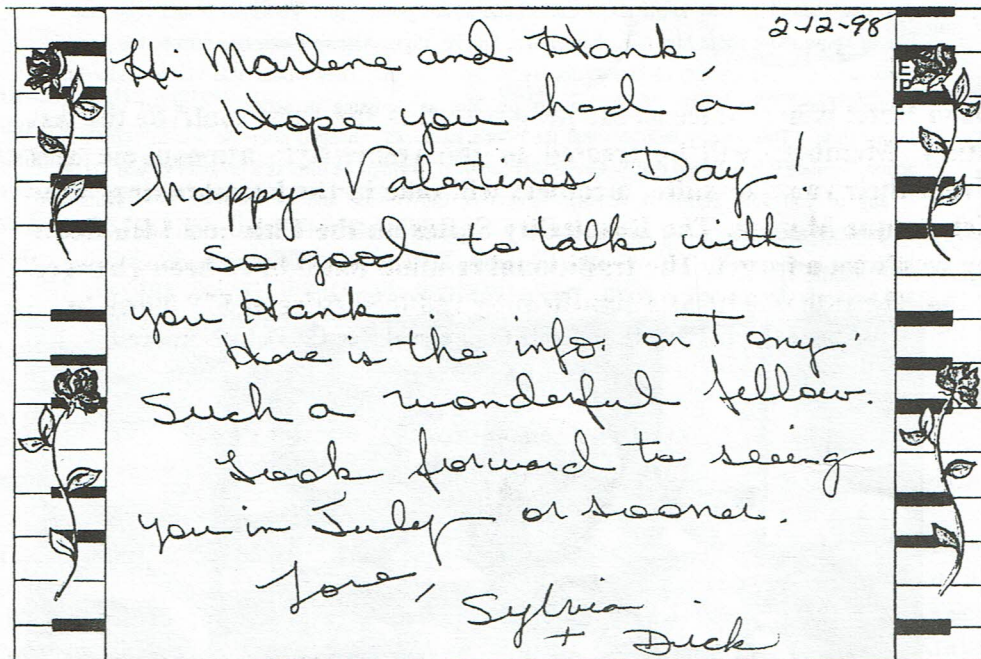 2-12-98
Hi Marlene and Hank,
Hope you had a
happy Valentine's Day!
So good to talk with
you Hank.
Here is the info. on Tony.
Such a wonderful fellow.
Look forward to seeing
you in July or sooner.
Love,
Sylvia
+ Dick